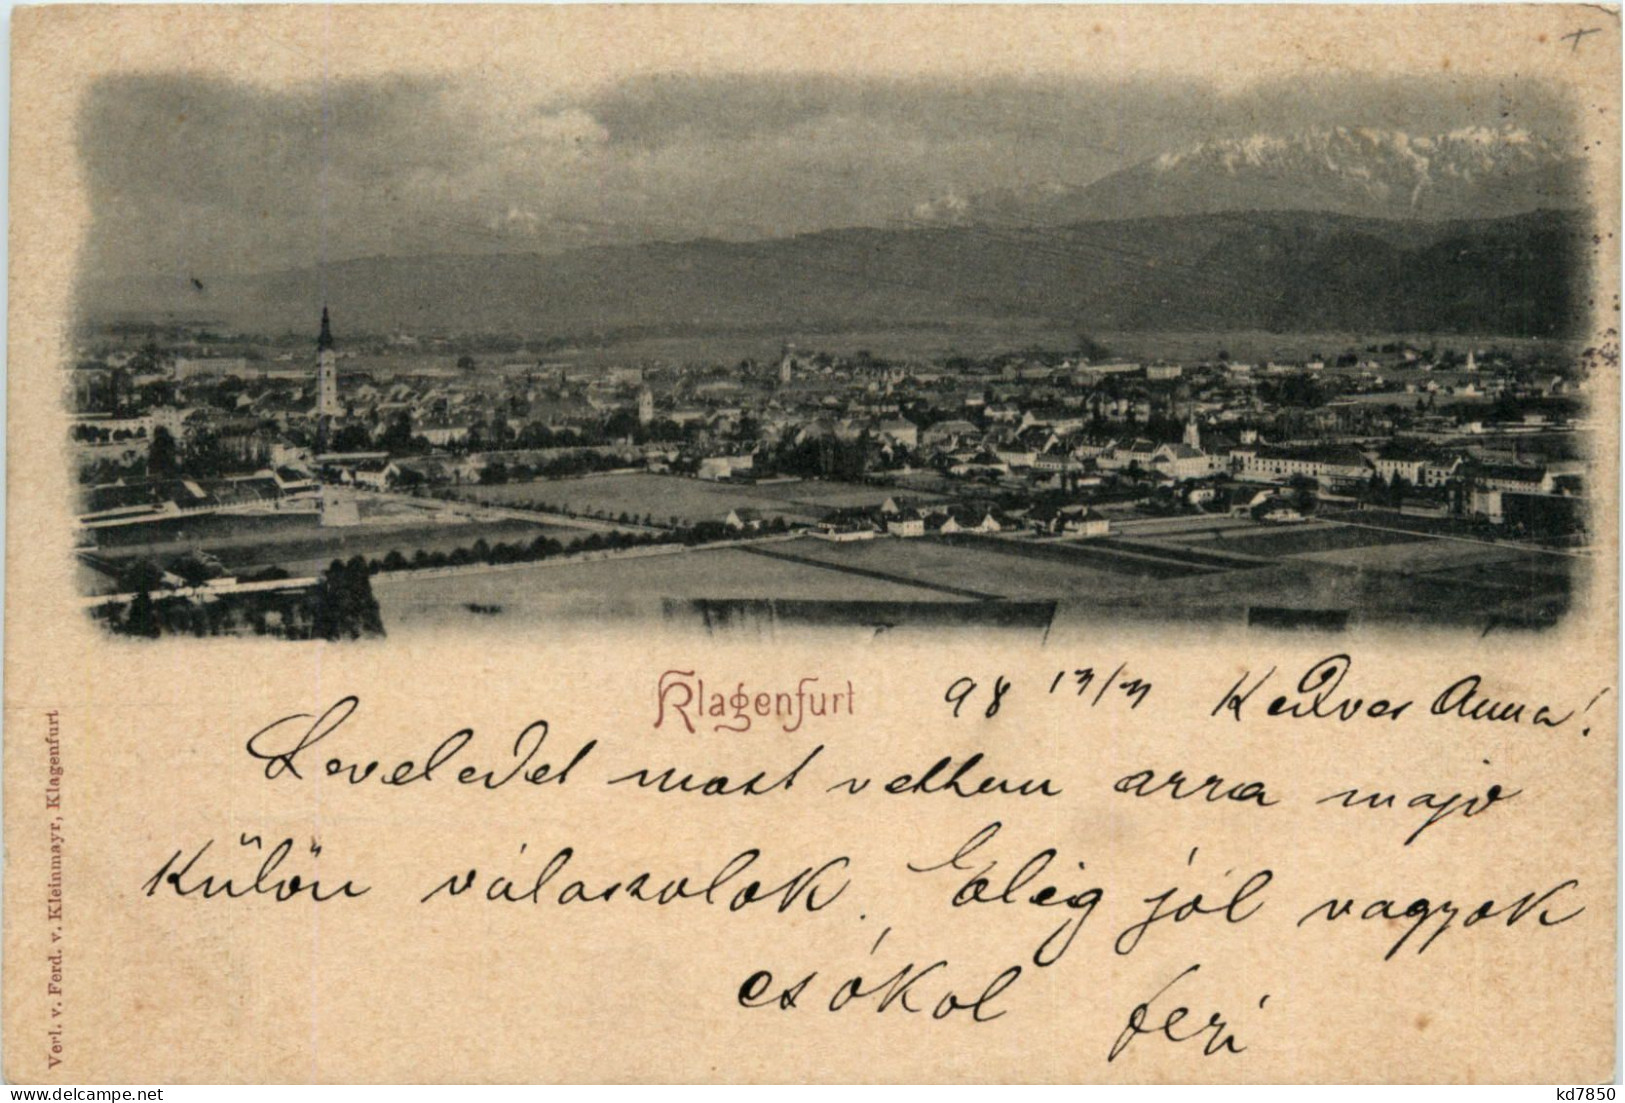 Klagenfurt
98 Kedves Anna!
Leveledet most vettem arra majd
külön válaszolok. Elég jól vagyok
csókol Feri
Verl. v. Ferd. v. Kleinmayr, Klagenfurt
www.delcampe.net
kd7850